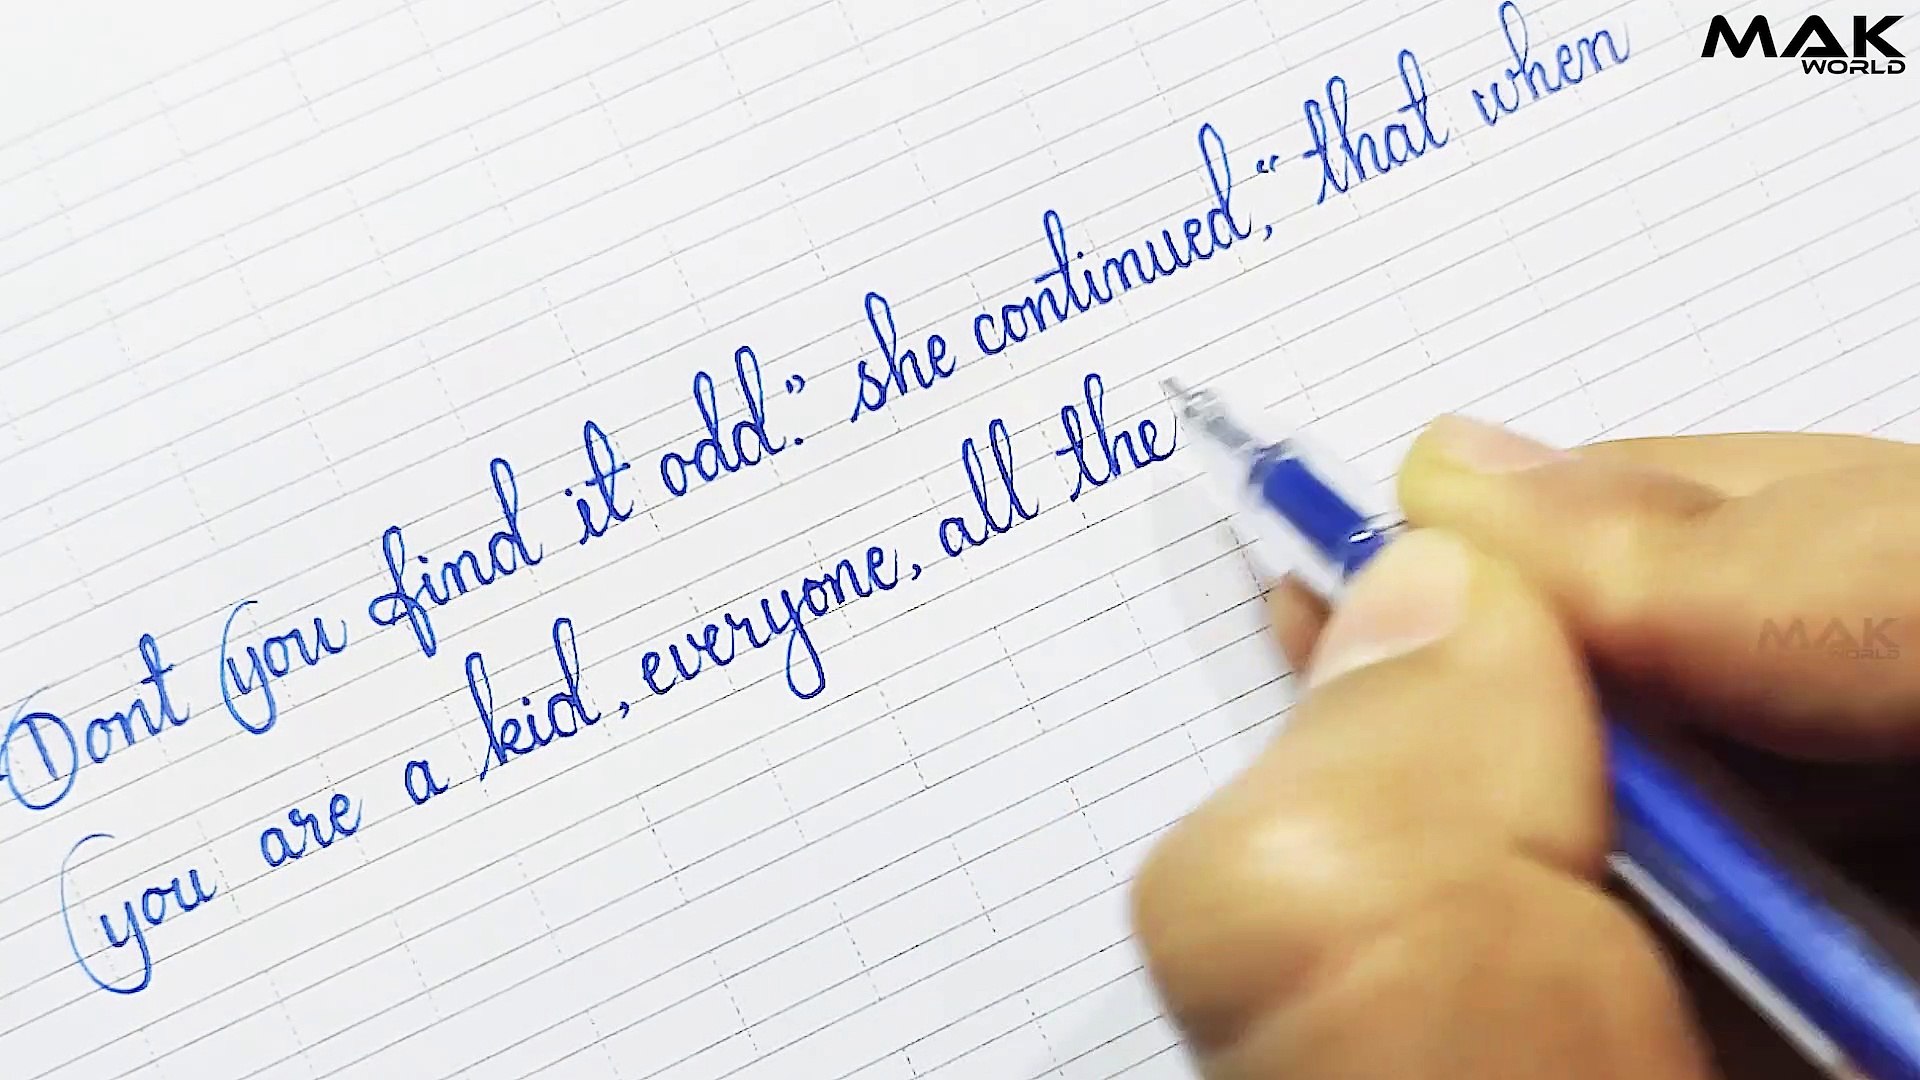 MAK
WORLD
Dont you find it odd." she continued," that when
you are a kid, everyone, all the
MAK
WORLD